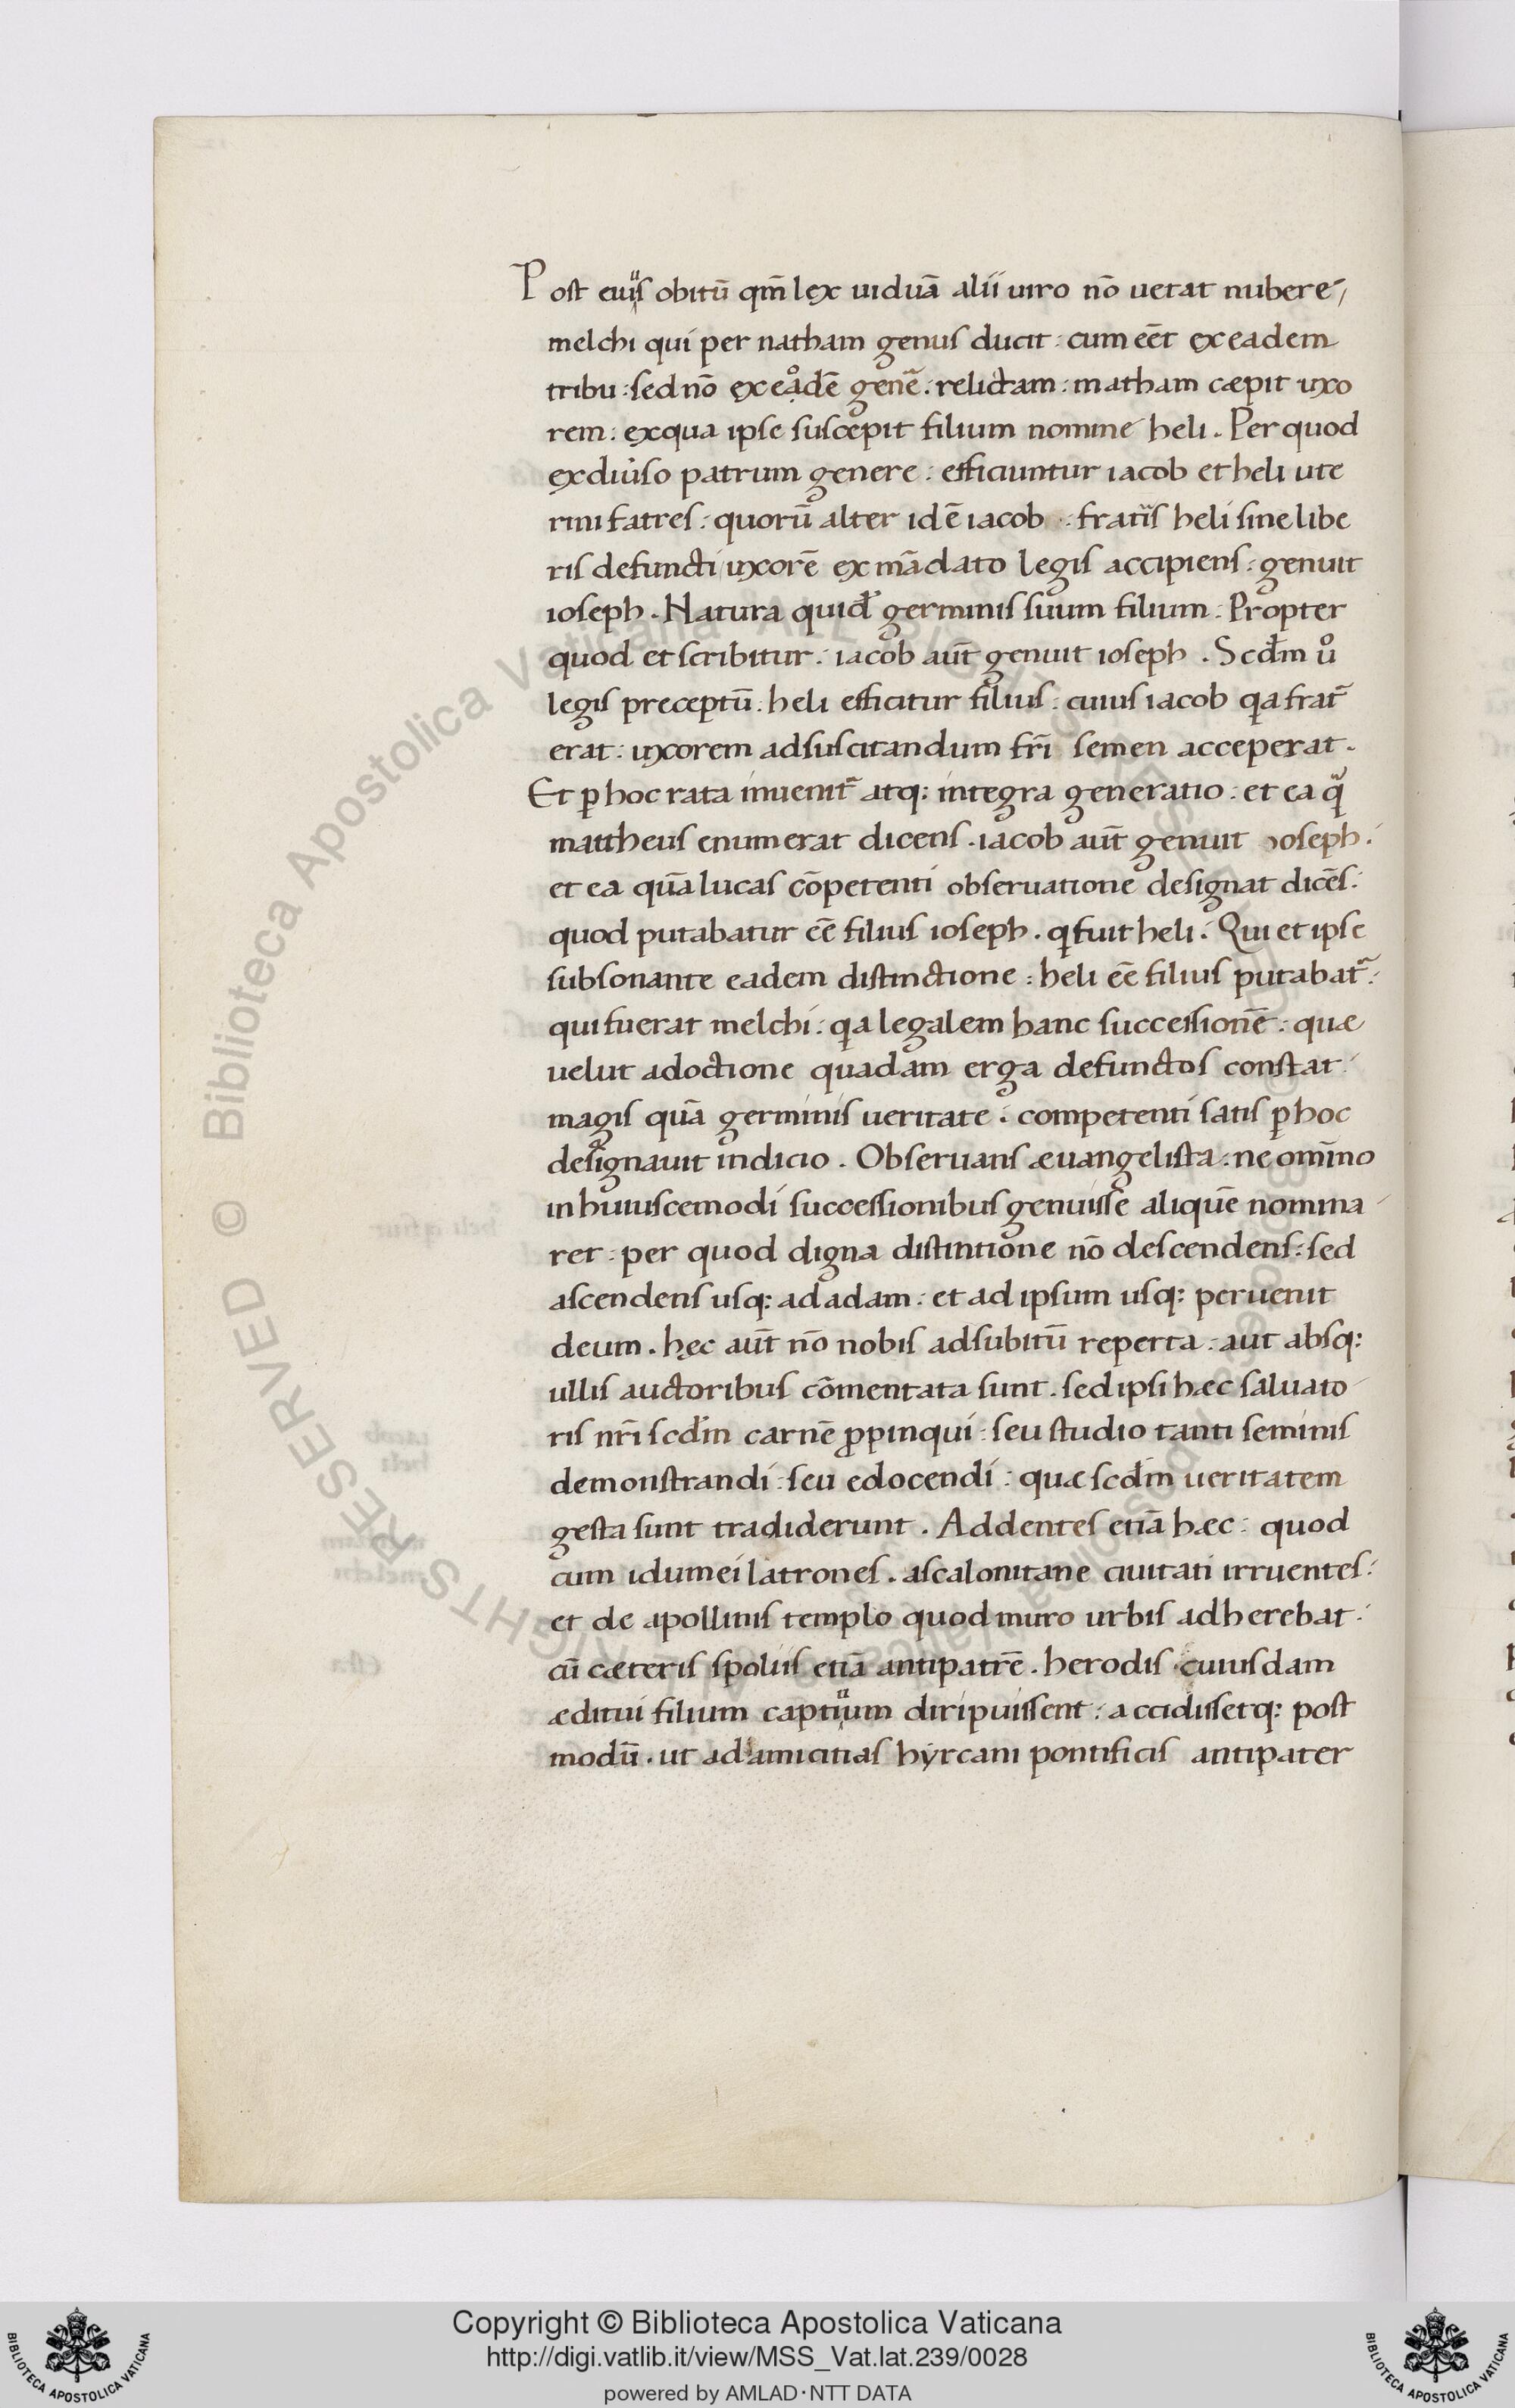 Post eius obitū qm̄ lex uiduā alii uiro nō uetat nubere
melchi qui per natham genus ducit : cum eēt ex eadem
tribu : sed nō ex eodē genē : relictam : matham cæpit uxo
rem : ex qua ipse suscepit filium nomine heli . Per quod
ex diuso patrum genere : efficiuntur iacob et heli ute
rini fatres : quorū alter idē iacob : fratris heli sine libe
ris defuncti uxorē ex mādato legis accipiens : genuit
ioseph . Natura quid̄ germinis suum filium : Propter
quod et scribitur : iacob aūt genuit ioseph . Scd̄m uº
legis preceptū : heli efficitur filius : cuius iacob qa frat̄
erat : uxorem ad suscitandum fr̄i semen acceperat .
Et ꝑ hoc rata inuenit̄ atq: integra generatio : et ea q̄
mattheus enumerat dicens . iacob aūt genuit ioseph :
et ea quā lucas cōpetenti obseruatione designat dicēs :
quod putabatur eē filius ioseph . q fuit heli . Qui et ipse
subsonante eadem distinctione : heli eē filius putabat̄ :
qui fuerat melchi : qa legalem hanc successionē : quæ
uelut adoctione quadam erga defunctos constat :
magis quā germinis ueritate : competenti satis ꝑ hoc
designauit indicio . Obseruans æuangelista : ne om̄ino
in huiuscemodi successionibus genuisse aliquē nomina
ret : per quod digna distintione nō descendens : sed
ascendens usq: ad adam : et ad ipsum usq: peruenit
deum . hęc aūt nō nobis ad subitū reperta : aut absq:
ullis auctoribus cōmentata sunt . sed ipsi hæc saluato
ris nr̄i scd̄m carnē ꝓpinqui : seu studio tanti seminis
demonstrandi : seu edocendi : quæ scd̄m ueritatem
gesta sunt tradiderunt . Addentes etiā hæc : quod
cum idumei latrones . ascalonitane ciuitati irruentes :
et de apollinis templo quod muro urbis adherebat :
cū cæteris spoliis etiā antipatrē . herodis cuiusdam
æditui filium captiuum diripuissent : accidissetq: post
modū . ut ad amicitias hyrcani pontificis antipater
Copyright © Biblioteca Apostolica Vaticana
http://digi.vatlib.it/view/MSS_Vat.lat.239/0028
powered by AMLAD·NTT DATA